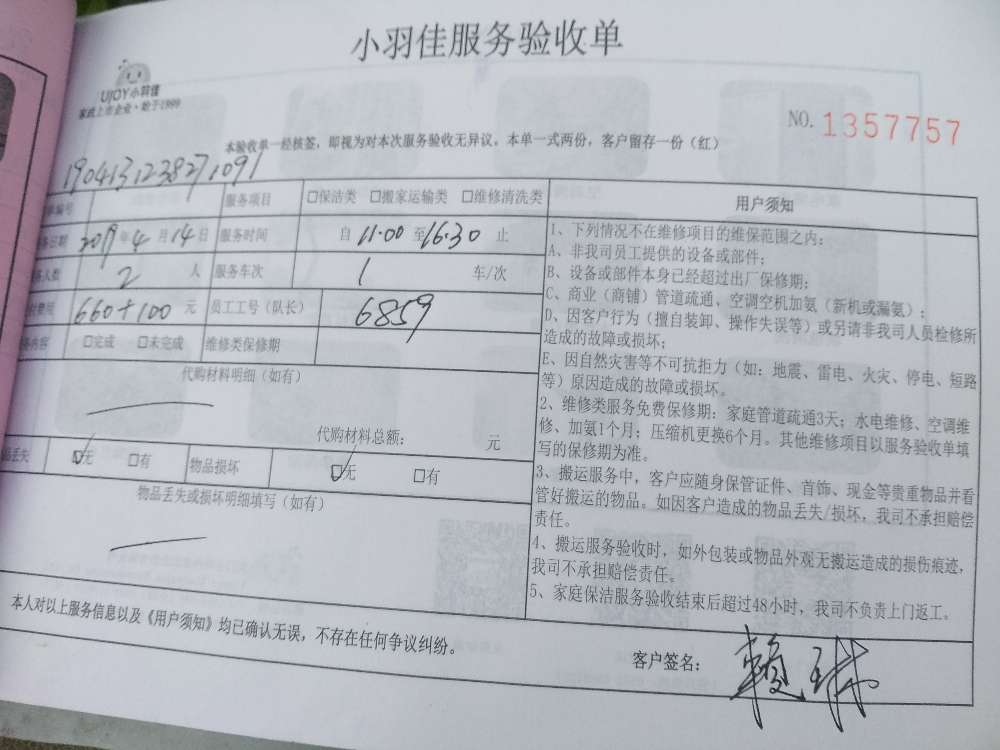 小羽佳服务验收单
UJOY小羽佳
家政上市企业·始于1999
NO. 1357757
本验收单一经核签，即视为对本次服务验收无异议。本单一式两份，客户留存一份（红）
1904131238271091
编号 服务项目 □保洁类 □搬家运输类 □维修清洗类
日期 2019年4月14日 服务时间 自 11:00 至 16:30 止
人数 2 人 服务车次 1 车/次
费用 660+100 元 员工工号（队长） 6859
内容 □完成 □未完成 维修类保修期
代购材料明细（如有）
代购材料总额： 元
品丢失 ☑无 □有 物品损坏 ☑无 □有
物品丢失或损坏明细填写（如有）
用户须知
1、下列情况不在维修项目的维保范围之内：
A、非我司员工提供的设备或部件；
B、设备或部件本身已经超过出厂保修期；
C、商业（商铺）管道疏通、空调空机加氨（新机或漏氨）；
D、因客户行为（擅自装卸、操作失误等）或另请非我司人员检修所
造成的故障或损坏；
E、因自然灾害等不可抗拒力（如：地震、雷电、火灾、停电、短路
等）原因造成的故障或损坏。
2、维修类服务免费保修期：家庭管道疏通3天；水电维修、空调维
修、加氨1个月；压缩机更换6个月。其他维修项目以服务验收单填
写的保修期为准。
3、搬运服务中，客户应随身保管证件、首饰、现金等贵重物品并看
管好搬运的物品。如因客户造成的物品丢失/损坏，我司不承担赔偿
责任。
4、搬运服务验收时，如外包装或物品外观无搬运造成的损伤痕迹，
我司不承担赔偿责任。
5、家庭保洁服务验收结束后超过48小时，我司不负责上门返工。
本人对以上服务信息以及《用户须知》均已确认无误，不存在任何争议纠纷。
客户签名： 赖琳